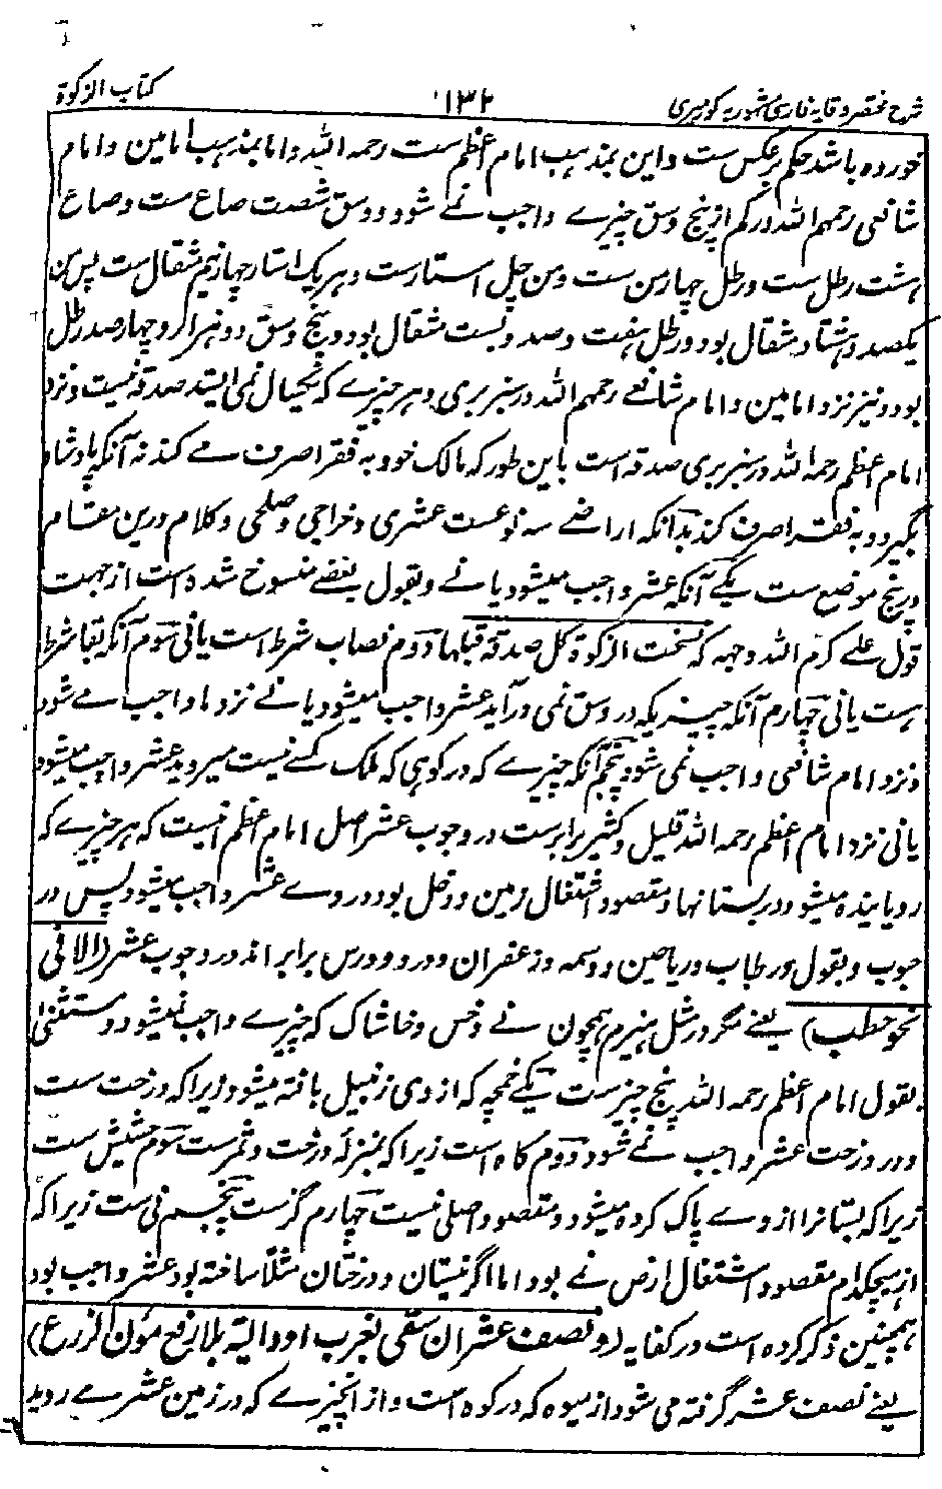 شرح مختصر وقایه فارسی مشهور به کور میری ۱۳۲ کتاب الزکوة
خورده باشد حکم برعکس ست و این بمذهب امام اعظم ست رحمه الله و اما بمذهب امامین و امام
شافعی رحمهم الله در کم از پنج وسق چیزے واجب نمے شود و وسق شصت صاع ست و صاع
هشت رطل ست و رطل چهار من ست و من چهل استارست و هر یک استار چهار نیم مثقال ست پس من
یکصد و هشتاد مثقال بود و رطل هفت و صد و بست مثقال بود و پنج وسق دو هزار و چهار صد رطل
بود و نیز نزد امامین و امام شافعے رحمهم الله در سبزبری و هر چیزے که یکسال نمی ایستد صدقه نیست و نزد
امام اعظم رحمه الله در سبزبری صدقه است باین طور که مالک خود به فقرا صرف مے کند نه آنکه پادشاه
بگیرد و به فقرا صرف کند بدانکه اراضے سه نوعست عشری و خراجی و صلحی و کلام درین مقام
در پنج موضع ست یکے آنکه عشر واجب میشود یا نے و بقول بعضے منسوخ شده است از جهت
قول علے کرم الله وجهه که نسخت الزکوة کل صدقة قبلها دوم نصاب شرط است یا نی سوم آنکه بقا شرط
ست یا نی چهارم آنکه چیزیکه در وسق نمی درآید عشر واجب میشود یا نے نزد ما واجب مے شود
و نزد امام شافعی واجب نمی شود پنجم آنکه چیزے که در کوهی که ملک کسے نیست میروید عشر واجب میشود
یا نی نزد امام اعظم رحمه الله قلیل و کثیر برابرست در وجوب عشر اصل امام اعظم اینست که هر چیزے که
رویانیده میشود در بستانها و مقصود اشتغال زمین و دخل بود در وے عشر واجب میشود پس در
حبوب و بقول و رطاب و ریاحین و وسمه و زعفران و ورد و ورس برابر اند در وجوب عشر (الا فی
نحو حطب) یعنے مگر در مثل هیزم همچون نے و خس و خاشاک که چیزے واجب نمیشود و مستثنی
بقول امام اعظم رحمه الله پنج چیزست یکے خمچه که از وی زنبیل بافته میشود زیرا که درخت ست
و در درخت عشر واجب نمے شود دوم کاه است زیرا که بمنزله درخت و ثمرست سوم حشیش ست
زیرا که بستانرا از وے پاک کرده میشود و مقصود اصلی نیست چهارم گزست پنجم نی ست زیرا که
از هیچکدام مقصود اشتغال ارض نے بود اما اگر نیستان و درختان مثلا ساخته بود عشر واجب بود
همچنین ذکر کرده است در کفایه (و نصف عشر ان سقی بغرب او دالیة بلا رفع مؤن الزرع)
یعنے نصف عشر گرفته می شود از میوه که در کوه است و از انچیزے که در زمین عشرے روید